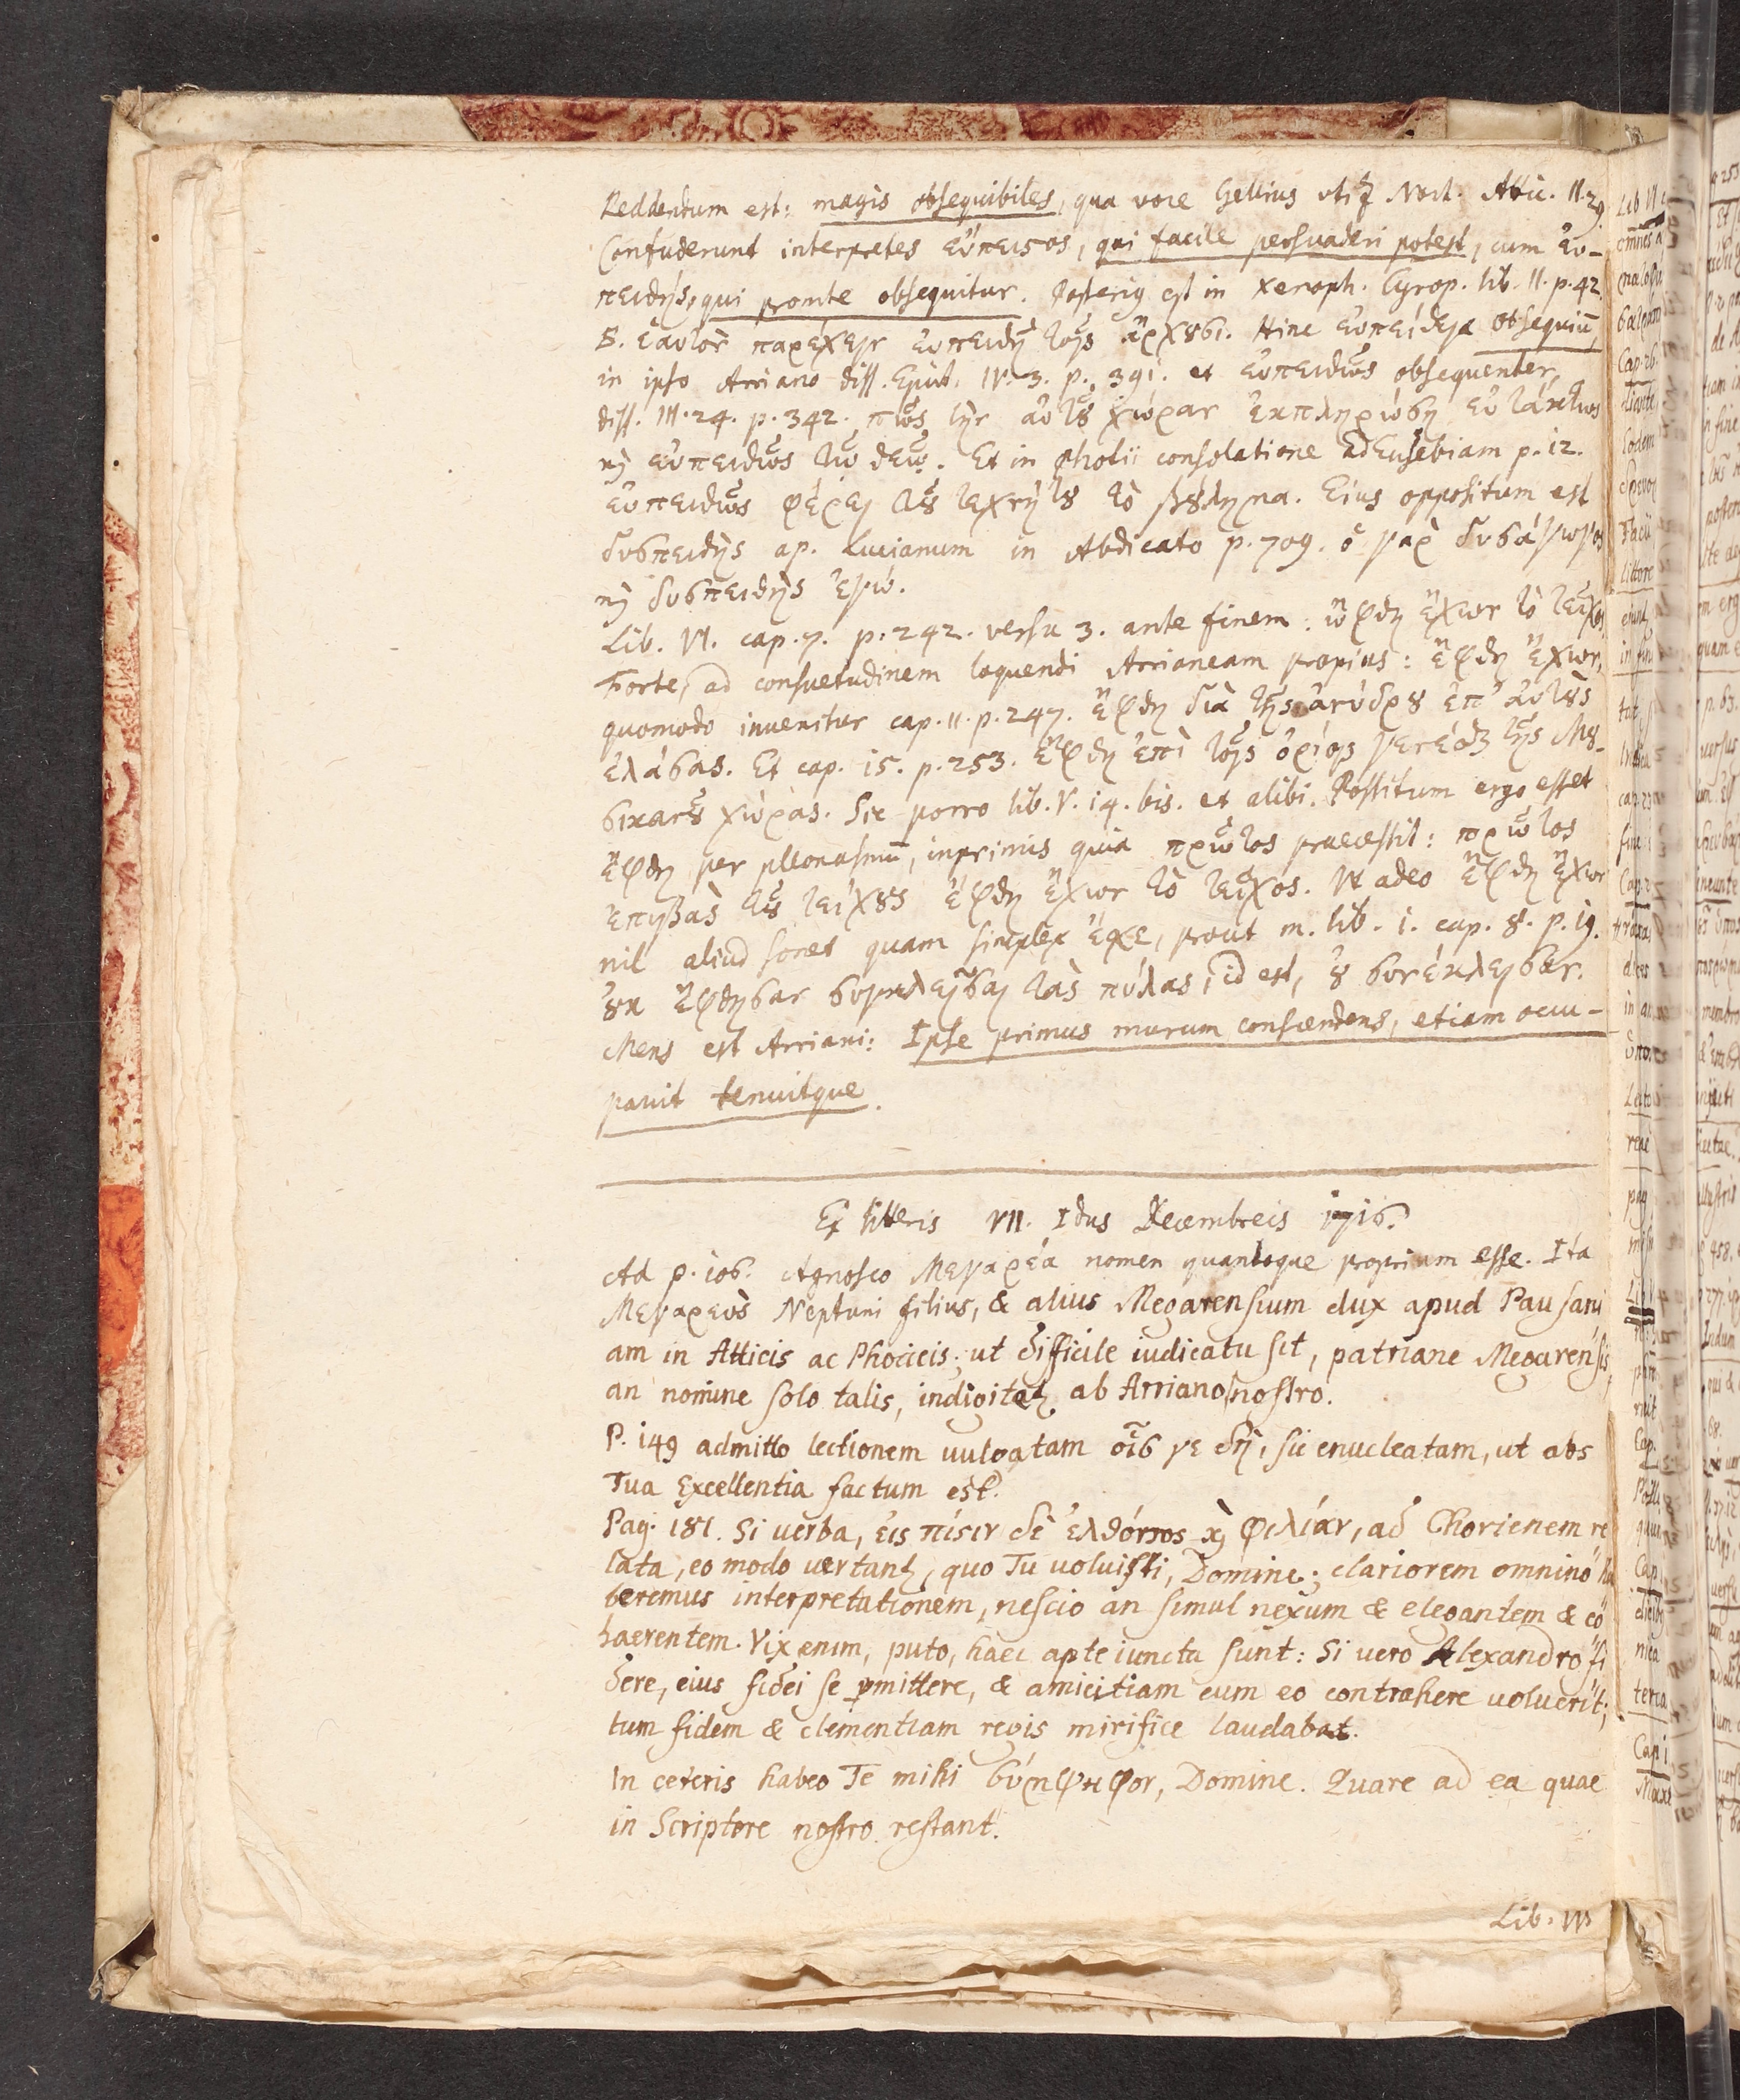 Reddendum est: magis obsequibiles, qua voce Gellius utitur Noct. Attic. II. 29.
Confuderunt interpretes εὔπειστος, qui facile persuaderi potest, cum ἐυ-
πειθής, qui promte obsequitur. Posterius est in Xenoph. Cyrop. lib. II. p. 42.
B. ἑαυτὸν παρέχειν ἐυπειθῆ τοῖς ἄρχουσι. Hinc ἐυπείθεια obsequiū,
in ipso Arriano diss. Epict. IV. 3. p. 391. et ἐυπειθῶς obsequenter,
diss. III. 24. p. 342. πῶς τὴν αὑτοῦ χώραν ἐκπληρώσῃ εὐτάκτως
καὶ εὐπειθῶς τῷ θεῷ. Et in Photii consolatione ad Eusebiam p. 12.
ἐυπειθῶς φέρει τοῦ τεχνήτου τὸ βούλημα. Eius oppositum est
δυσπειθὴς ap. Lucianum in Abdicato p. 709. ὁ γὰρ δυσάγωγος
καὶ δυσπειθὴς ἐγώ.
Lib. VI. cap. 7. p. 242. versu 3. ante finem: ὤφθη ἔχων τὸ τεῖχος,
Forte, ad consuetudinem loquendi Arrianeam propius: ἔφθη ἔχων,
quomodo invenitur cap. 11. p. 247. ἔφθη διὰ τῆς ἀνύδρου ἐπ' ἀυτοὺς
ἐλάσας. Et cap. 15. p. 253. ἔφθη ἐπὶ τοῖς ὁρίοις γενέσθαι τῆς Μου-
σικανοῦ χώρας. Sic porro lib. V. 14. bis. et alibi. Positum ergo esset
ἔφθη per pleonasmū, inprimis quia πρῶτος praecessit: πρῶτος
ἐπιβὰς τοῦ τείχους ἔφθη ἔχων τὸ τεῖχος. Ut adeo ἔφθη ἔχων
nil aliud sonet quam simplex ἔσχε, prout m. lib. I. cap. 8. p. 19.
οὐκ ἔφθησαν συγκλεῖσαι τὰς πύλας, id est, οὐ συνέκλεισαν.
Mens est Arriani: Ipse primus murum conscendens, etiam occu-
pavit tenuitque.
Ex litteris VII. Idus Decembreis 1716.
Ad p. 106. Agnosco Μεγαρέα nomen quandoque proprium esse. Ita
Μεγαρεὺς Neptuni filius, & alius Megarensium dux apud Pausani
am in Atticis ac Phocicis; ut difficile iudicatu sit, patriane Megarensis,
an nomine solo talis, indigitetur ab Arriano nostro.
P. 149 admitto lectionem uulgatam οἷς γε δή, sic enucleatam, ut abs
Tua Excellentia factum est.
Pag. 181. Si uerba, εἰς πίστιν δὲ ἐλθόντος καὶ φιλίαν, ad Chorienem re
lata, eo modo uertantur, quo Tu uoluisti, Domine; clariorem omnino ha
beremus interpretationem, nescio an simul nexum & elegantem & co
haerentem. Vix enim, puto, haec apte iuncta sunt: Si uero Alexandro fi
dere, eius fidei se pmittere, & amicitiam cum eo contrahere uoluerit;
tum fidem & clementiam regis mirifice laudabat.
In ceteris habeo Te mihi σύμψηφον, Domine. Quare ad ea quae
in Scriptore nostro restant.
Lib. III